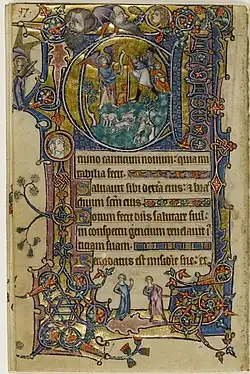 37.
mino canticum novum: quia mi
rabilia fecit.
Salvavit sibi dextera eius: & bra
chium scm eius
Notum fecit dns salutare suum
in conspectu gencium revelavit
iuticiam suam.
Recordatus est misericordie sue